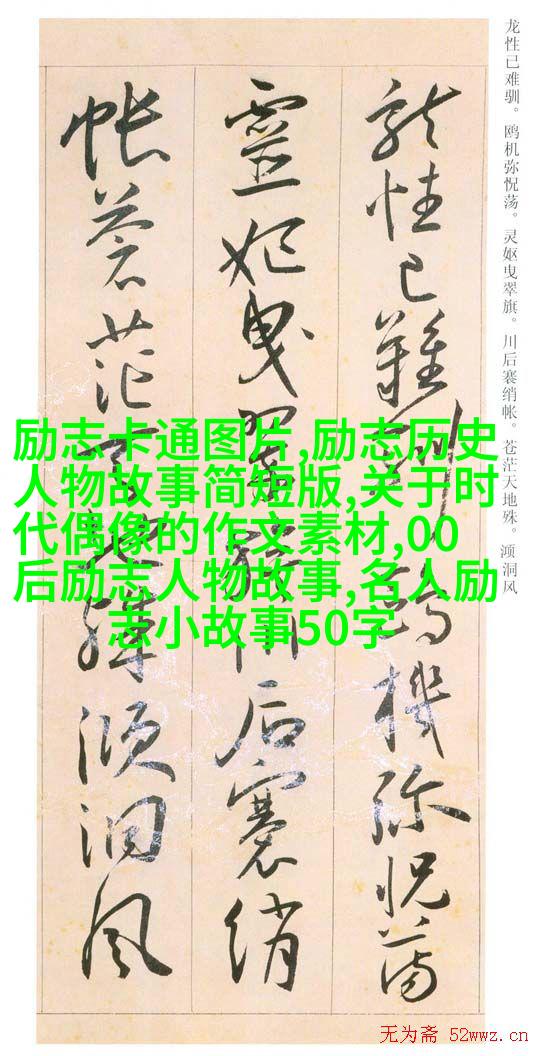 龙性已难驯。鸥机弥怳荡。灵妪曳翠旗。川后褰绡帐。苍茫天地殊。澒洞风
龍性已難馴鷗機弥怳蕩
靈妪曳翠旗川后褰綃
帳蒼茫天地殊澒洞風
励志卡通图片,励志历史
人物故事简短版,关于时
代偶像的作文素材,00
后励志人物故事,名人励
志小故事50字
无为斋 52wwz.cn